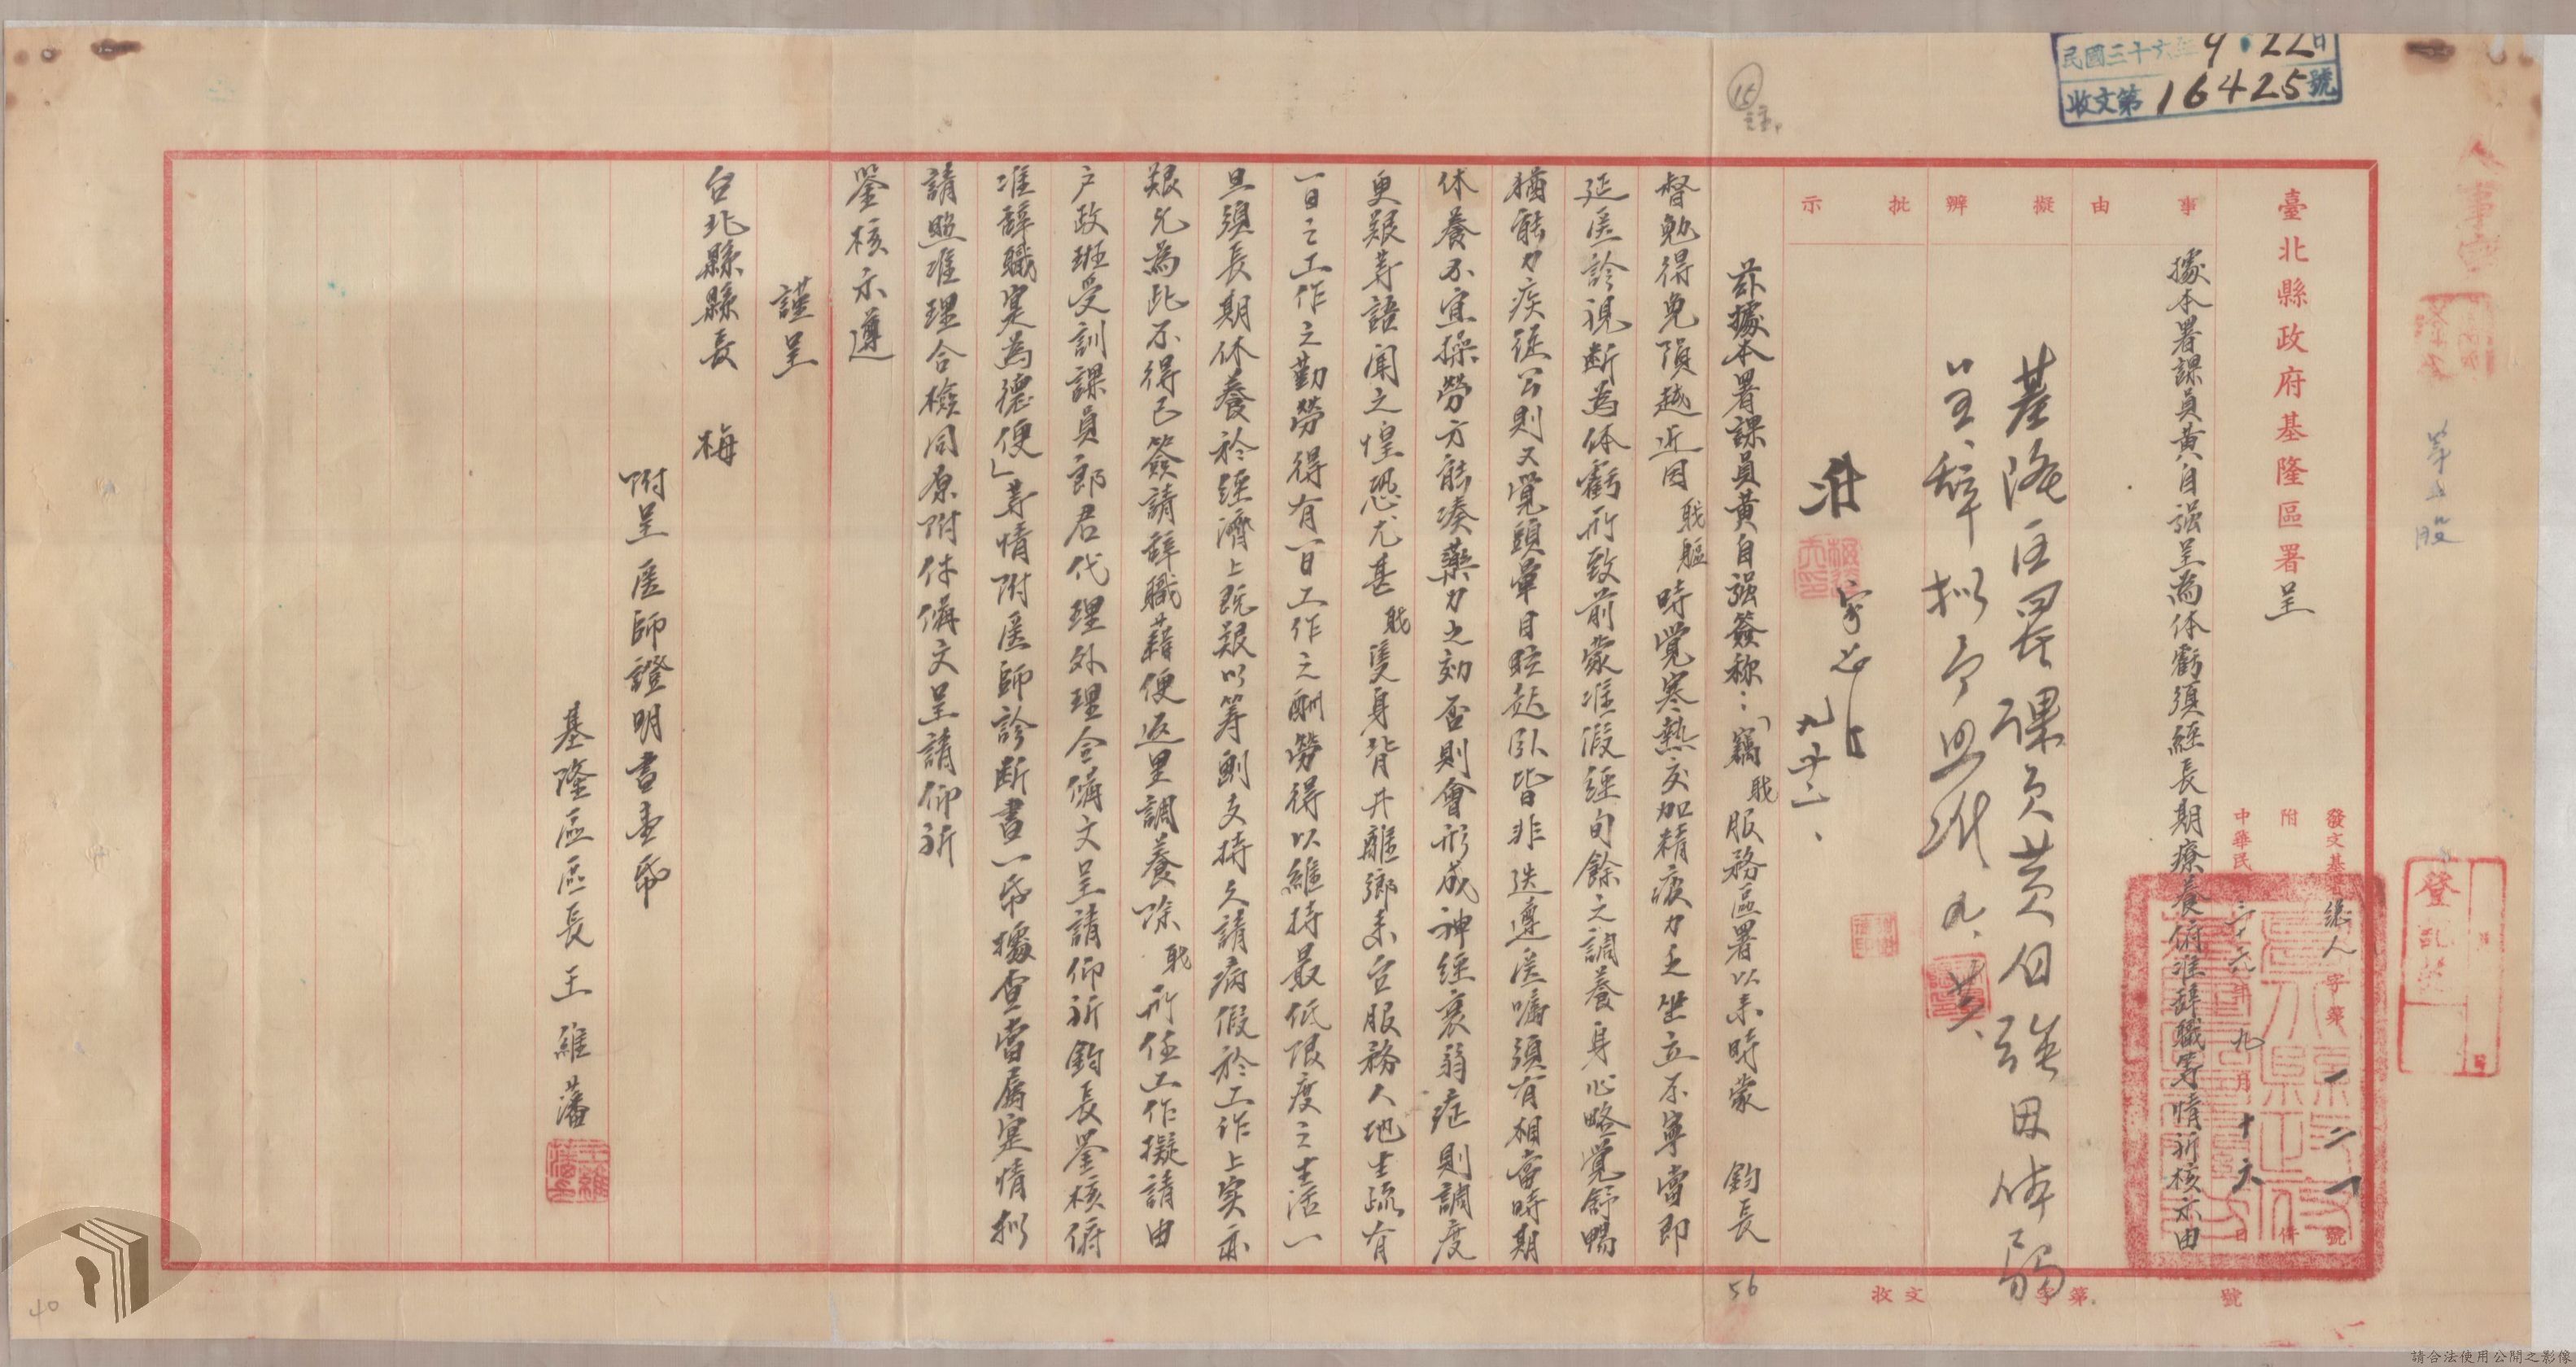 民國三十六年9.22日
收文第16425號
人事室
第五股
登記
臺北縣政府基隆區署呈
發文基署總人字第一二一號
附件
中華民國三十六年九月十六日
事由
擬辦
批示
據本署課員黃自強呈為体虧須經長期療養俯准辞職等情祈核示由
基隆區署課員黃自強因体弱
呈辞擬予照准
准
九廿二、
茲據本署課員黃自强簽称：「竊戝服務區署以来時蒙 鈞長
督勉得免隕越近因戝軀時覺寒熱交加精疲力乏坐立不寧當即
延医診視断為体虧所致前蒙准假經旬餘之調養身心略覺舒暢
猶能力疾從公則又覺頭暈目眩起臥皆非迭遵医嘱須有相當時期
休養不宜操勞方能湊藥力之効否則會形成神經衰弱症則調度
更艱等語聞之惶恐尤甚戝隻身背井離鄉来台服務人地生疏有
一日之工作之勤勞得有一日工作之酬勞得以維持最低限度之生活一
旦須長期休養於經濟上既艱以筹劃支持久請病假於工作上实亦
艱允為此不得已簽請辞職藉便返里調養除戝所任工作擬請由
户政班受訓課員郎君代理外理合備文呈請仰祈鈞長鑒核俯
准辞職寔為德便」等情附医師診断書一帋據查當屬寔情拟
請照准理合檢同原附件備文呈請仰祈
鑒核示遵
謹呈
台北縣縣長 梅
附呈医師證明書壹帋
基隆區區長王維藩
收文 字第 號
15
56
40
請合法使用公開之影像